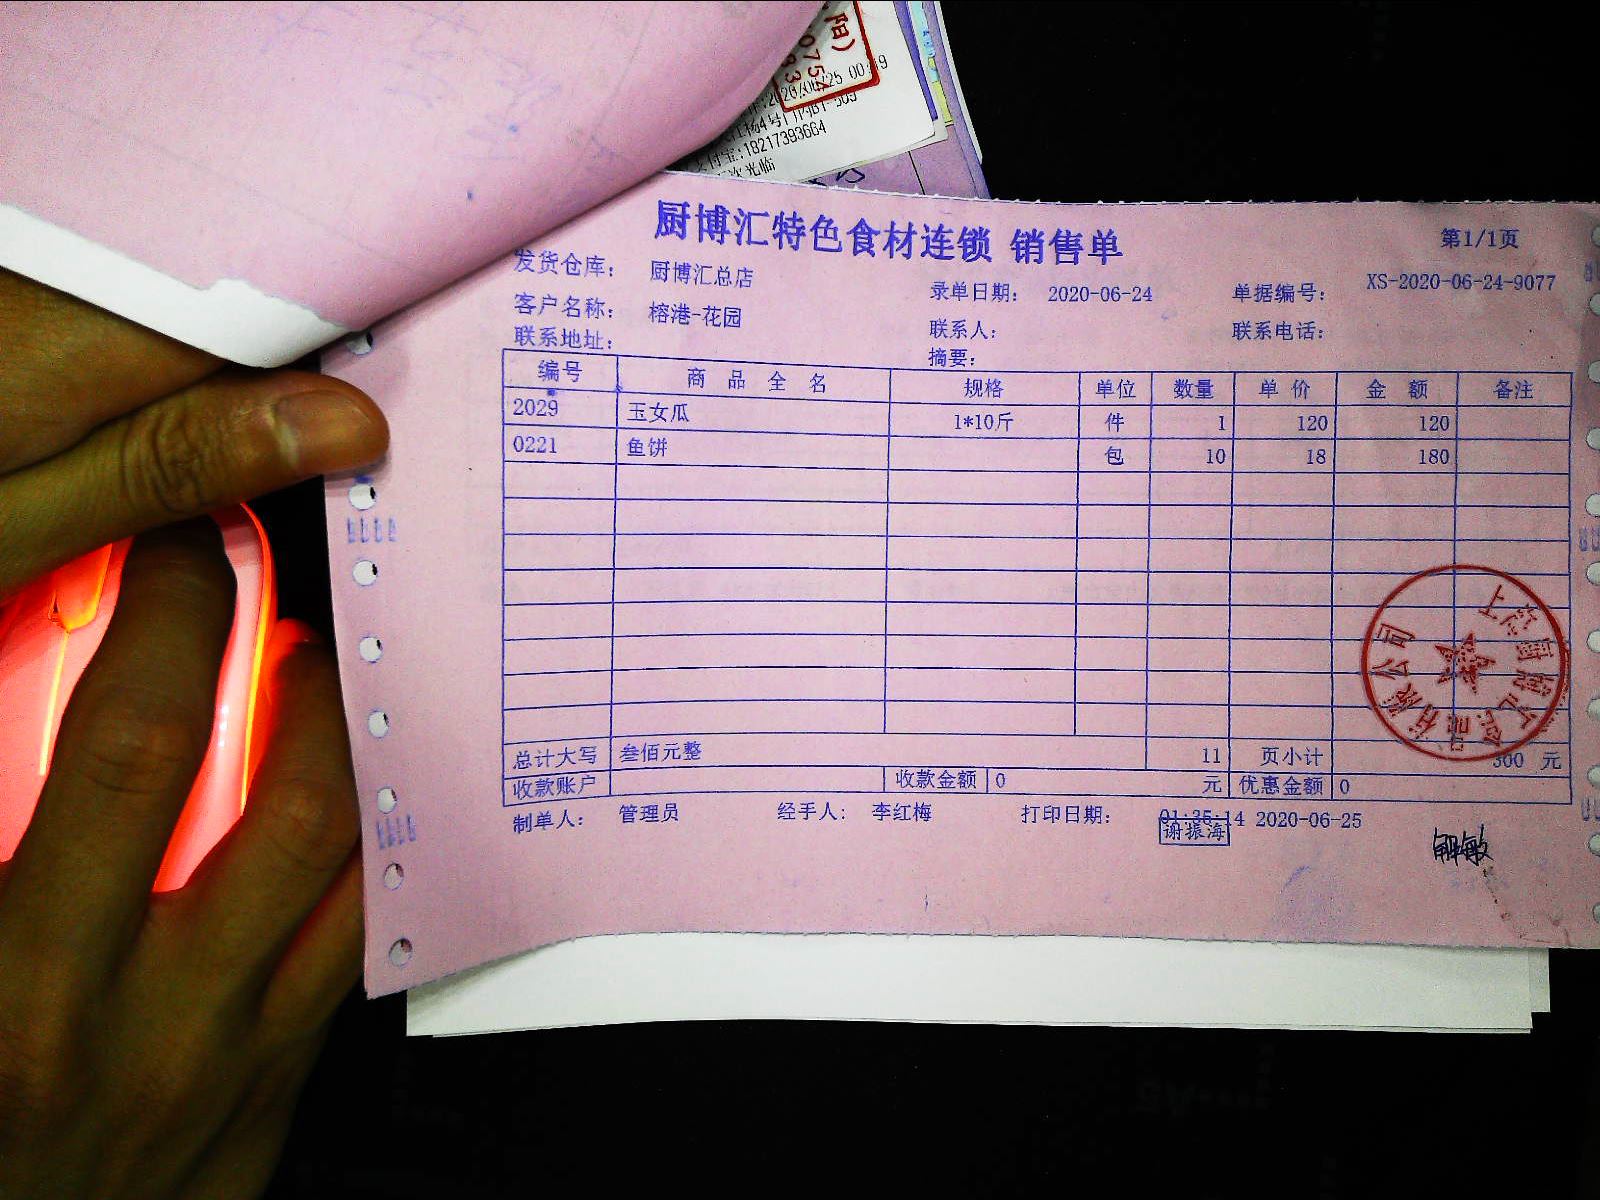 阳)
2020/06/25 00:
支付宝:18217393664
次光临
厨博汇特色食材连锁 销售单
第1/1页
发货仓库: 厨博汇总店
录单日期: 2020-06-24
单据编号: XS-2020-06-24-9077
客户名称: 榕港-花园
联系人:
联系电话:
联系地址:
摘要:
编号 商品全名 规格 单位 数量 单价 金额 备注
2029 玉女瓜 1*10斤 件 1 120 120
0221 鱼饼 包 10 18 180
总计大写 叁佰元整 11 页小计 300 元
收款账户 收款金额 0 元 优惠金额 0
制单人: 管理员 经手人: 李红梅 打印日期: 01:35:14 2020-06-25
谢振海
有限公司